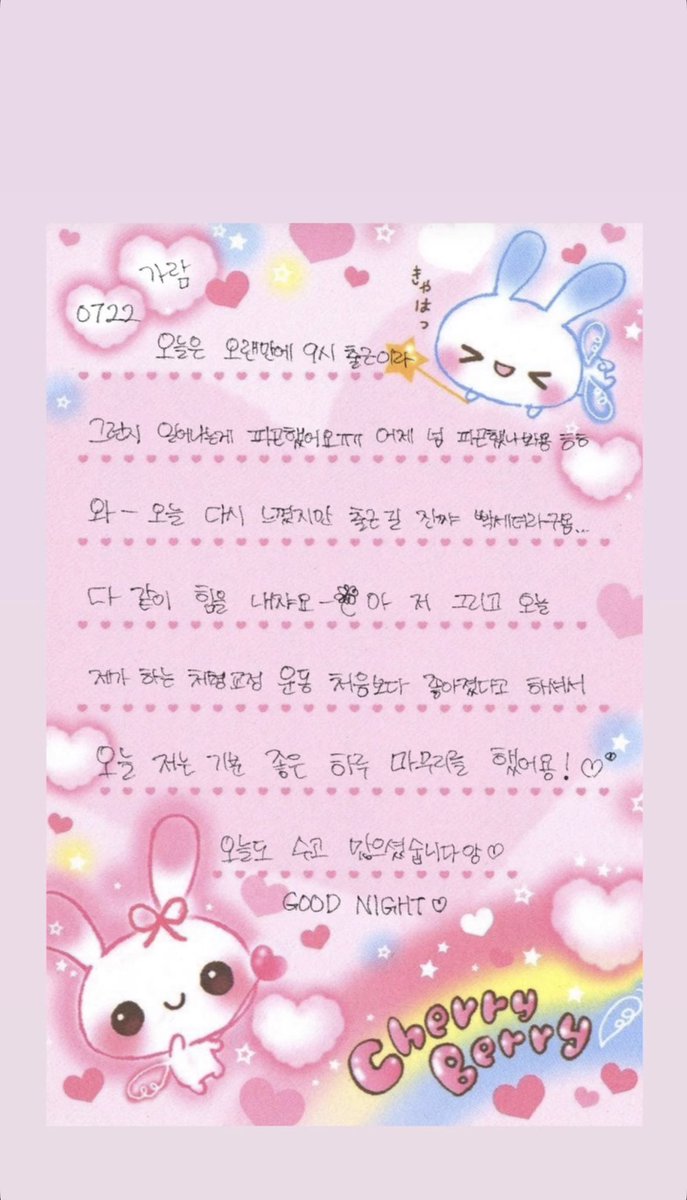 가람
0722
きゃはっ
오늘은 오랜만에 9시 출근이라
그런지 일어나는게 피곤했어요ㅠㅠ 어제 넘 피곤했나봐용 흐흐
와- 오늘 다시 느꼈지만 출근길 진짜 빡세더라구욤...
다 같이 힘을 내쟈요- 아 저 그리고 오늘
제가 하는 체형교정 운동 처음보다 좋아졌다고 하셔서
오늘 저는 기분 좋은 하루 마무리를 했어용! ♡
오늘도 수고 많으셨습니다앙♡
GOOD NIGHT♡
Cherry
Berry